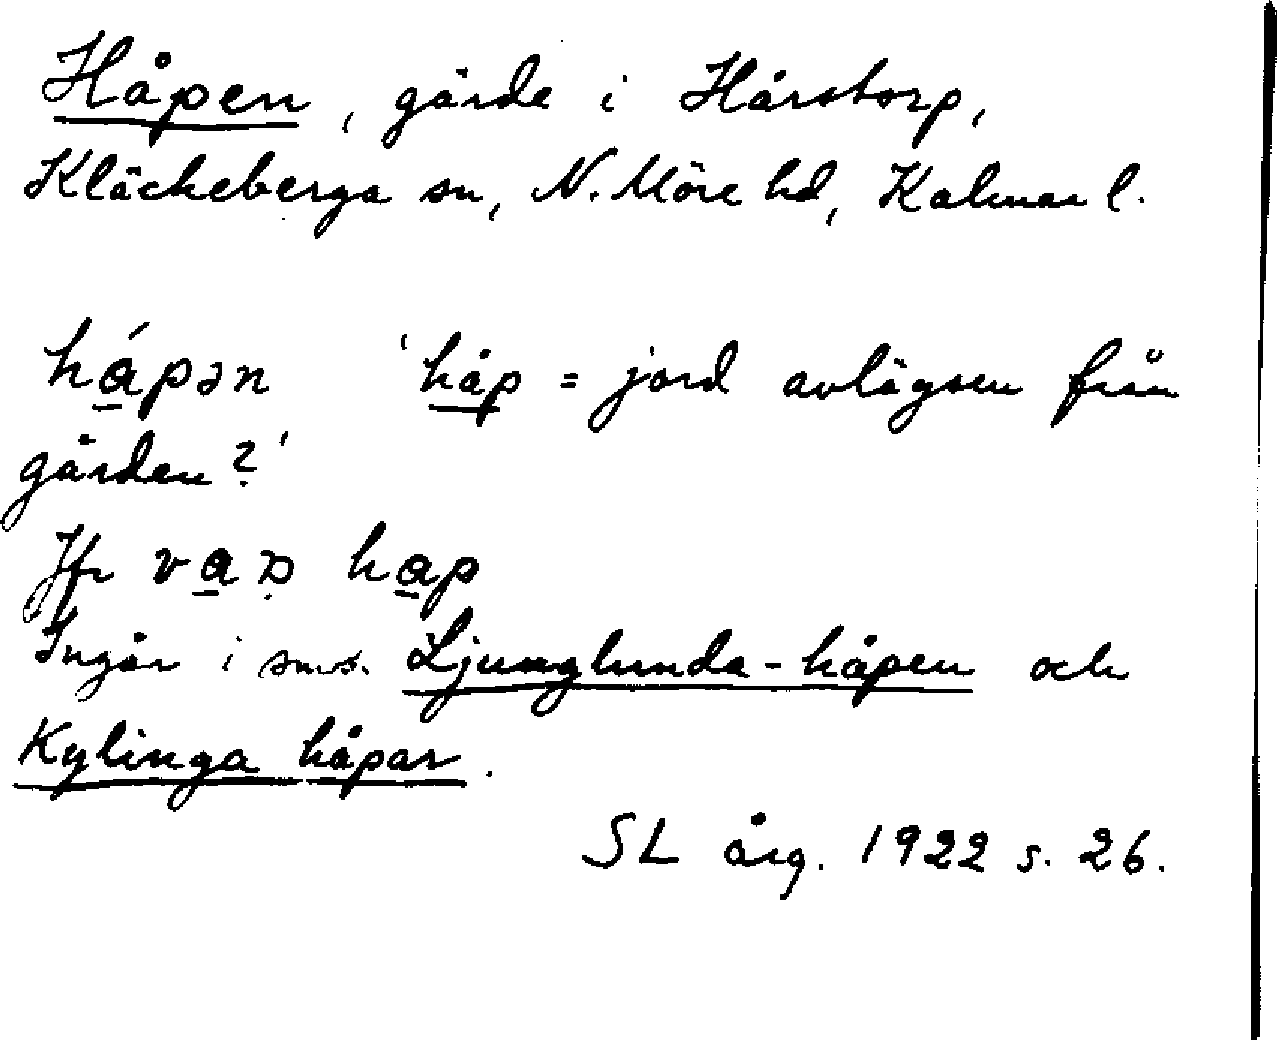 Håpen, gärde i Hårstorp,
Kläckeberga sn, N. Möre hd, Kalmar l.
há̱pən 'håp = jord avlägsen från
gården?'
Jfr ha̱p
Ingår i sms. Ljunglunda-håpen och
Kylinga håpar.
SL årg. 1922 s. 26.